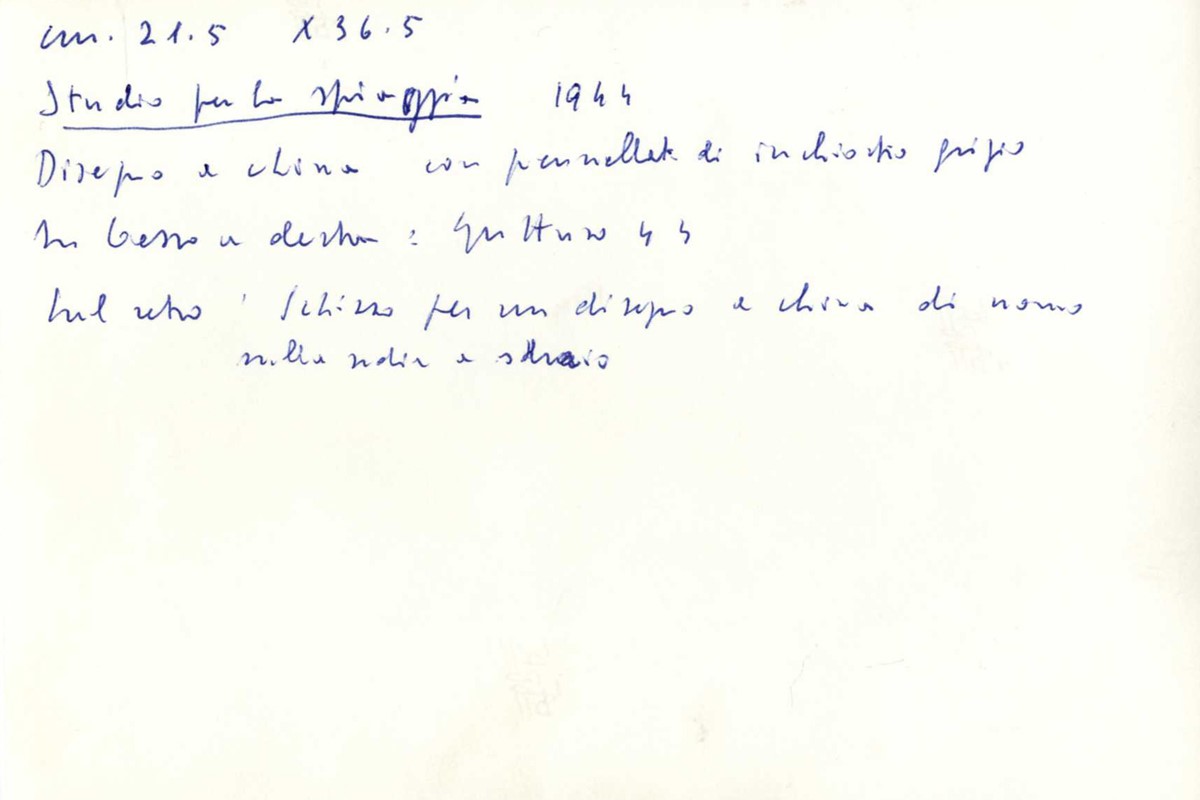 cm. 21.5 X 36.5
Studio per la spiaggia 1944
Disegno a china con pennellate di inchiostro grigio
In basso a destra : Guttuso 44
Sul retro : Schizzo per un disegno a china di uomo
sulla sedia a sdraio